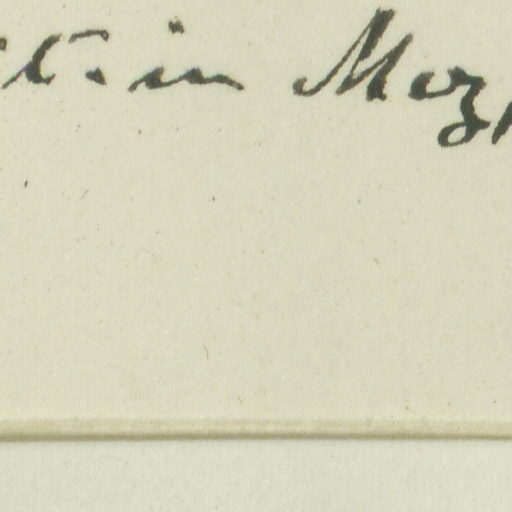 t. in Moz